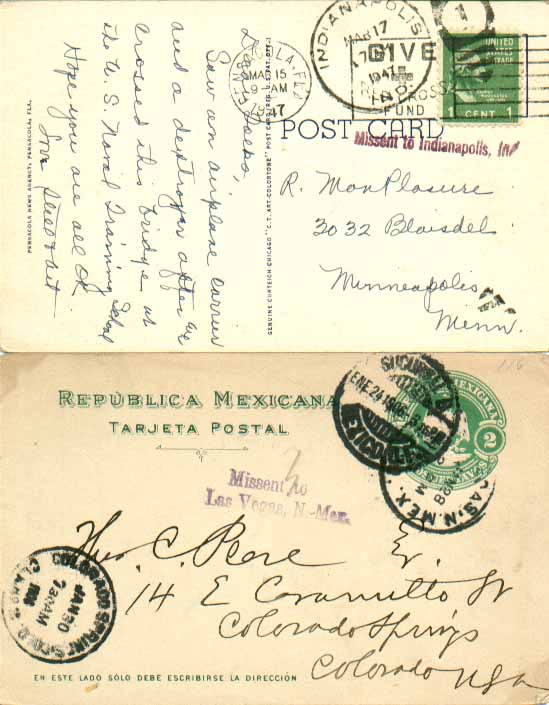 PENSACOLA NEWS AGENCY, PENSACOLA, FLA.
Saw an airplane carrier
and a destroyer after we
crossed this bridge at
the U. S. Naval Training School
Hope you are all OK
GENUINE CURTEICH-CHICAGO "C. T. ART-COLORTONE" POST CARD (REG. U. S. PAT. OFF.)
PENSACOLA, FLA.
MAR 15
9 - AM
1947
INDIANAPOLIS
MAR 17
1947
IND.
1
GIVE
CROSS
FUND
UNITED
STATES
POSTAGE
1 CENT 1
POST CARD
Missent to Indianapolis, Ind
R. MonPlasure
3032 Blaisdel
Minneapolis
Minn.
116
REPUBLICA MEXICANA
TARJETA POSTAL
SUCURSAL
ENE 24
MEXICO
MEXICANA
2
CENTAVOS
N. MEX.
Missent to
Las Vegas, N.-Mex.
COLORADO SPRINGS COLO.
JAN 30
7 30 AM
Theo. C.
14 E Caramillo St
Colorado Springs
Colorado USA
EN ESTE LADO SÓLO DEBE ESCRIBIRSE LA DIRECCIÓN